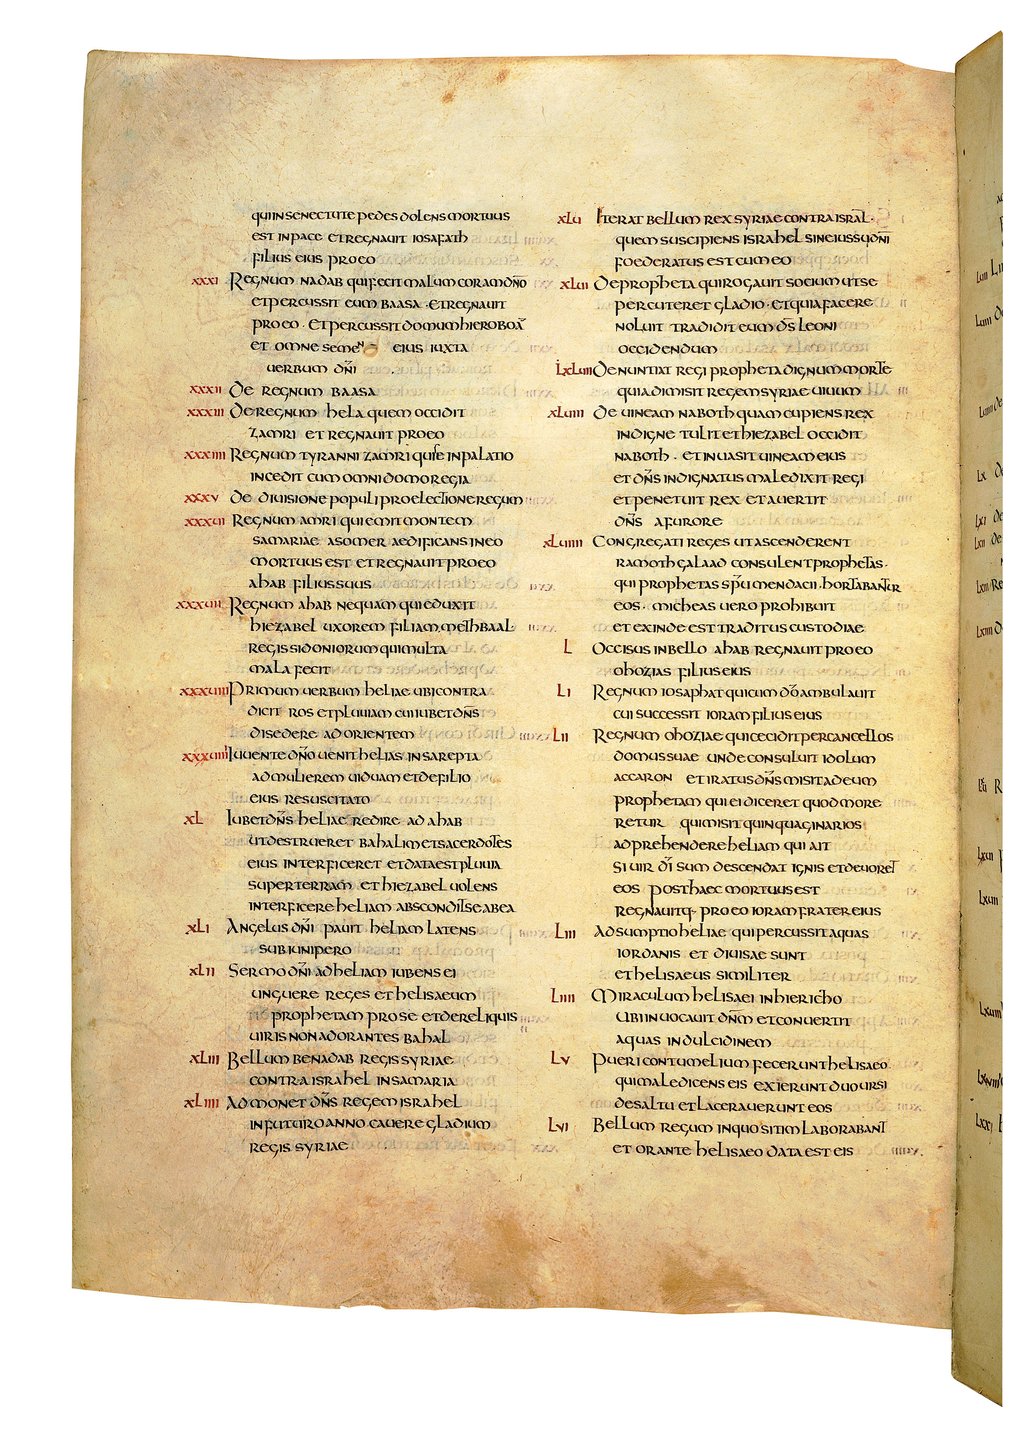 qui in senectute pedes dolens mortuus
est in pace et regnavit iosafath
filius eius pro eo
xxxi Regnum nadab qui fecit malum coram dn̄o
et percussit eum baasa · et regnavit
pro eo · et percussit domum hieroboā
et omne semeN eius iuxta
uerbum dn̄i
xxxii De regnum baasa
xxxiii De regnum hela quem occidit
zamri et regnauit pro eo
xxxiiii Regnum tyranni zamri qui se in palatio
incedit cum omni domo regia
xxxv De diuisione populi pro electione regum
xxxvi Regnum amri qui emit montem
samariae a somer aedificans in eo
mortuus est et regnauit pro eo
ahab filius suus
xxxvii Regnum ahab nequam qui eduxit
hiezabel uxorem filiam methbaal
regis sidoniorum qui multa
mala fecit
xxxviii Primum uerbum heliae ubi contra
dicit ros et pluuiam cui iubet dn̄s
discedere ad orientem
xxxviiii Iuuente dn̄o uenit helias in sarepta
ad mulierem uiduam et de filio
eius resuscitato
xl Iubet dn̄s heliae redire ad ahab
ut destrueret bahalim et sacerdotes
eius interficeret et data est pluuia
super terram et hiezabel uolens
interficere heliam abscondit se ab ea
xli Angelus dn̄i pauit heliam latens
sub iunipero
xlii Sermo dn̄i ad heliam iubens ei
unguere reges et helisaeum
prophetam pro se et de reliquis
uiris non adorantes bahal
xliii Bellum benadab regis syriae
contra israhel in samaria
xliiii Admonet dn̄s regem israhel
in futuro anno cauere gladium
regis syriae
xlv Iterat bellum rex syriae contra isra̅l ·
quem suscipiens israhel sine iussu dn̄i
foederatus est cum eo
xlvi De propheta qui rogauit socium ut se
percuteret gladio · et quia facere
noluit tradidit eum dn̄s leoni
occidendum
xlvii Denuntiat regi propheta dignum morte
quia dimisit regem syriae uiuum
xlviii De uineam naboth quam cupiens rex
indigne tulit et hiezabel occidit
naboth · et inuasit uineam eius
et dn̄s indignatus maledixit regi
et penetuit rex et auertit
dn̄s a furore
xlviiii Congregati reges ut ascenderent
ramoth galaad consulent prophetas ·
qui prophetas sp̄u mendacii · hortabantur
eos · micheas uero prohibuit
et exinde est traditus custodiae
l Occisus in bello ahab regnauit pro eo
ohozias filius eius
li Regnum iosaphat qui cum dō ambulauit
cui successit ioram filius eius
lii Regnum ohoziae qui cecidit per cancellos
domus suae unde consuluit idolum
accaron et iratus dn̄s misit ad eum
prophetam qui ei diceret quod more
retur qui misit quinquaginarios
adprehendere heliam qui ait
si uir dī sum descendat ignis et deuoret
eos post haec mortuus est
regnauitq· pro eo ioram frater eius
liii Adsumptio heliae qui percussit aquas
iordanis et diuisae sunt
et helisaeus similiter
liiii Miraculum helisaei in hiericho
ubi inuocauit dn̄m et conuertit
aquas in dulcidinem
lv Pueri contumelium fecerunt helisaeo
qui maledicens eis exierunt duo ursi
de saltu et lacerauerunt eos
lvi Bellum regum in quo siti laborabant
et orante helisaeo data est eis